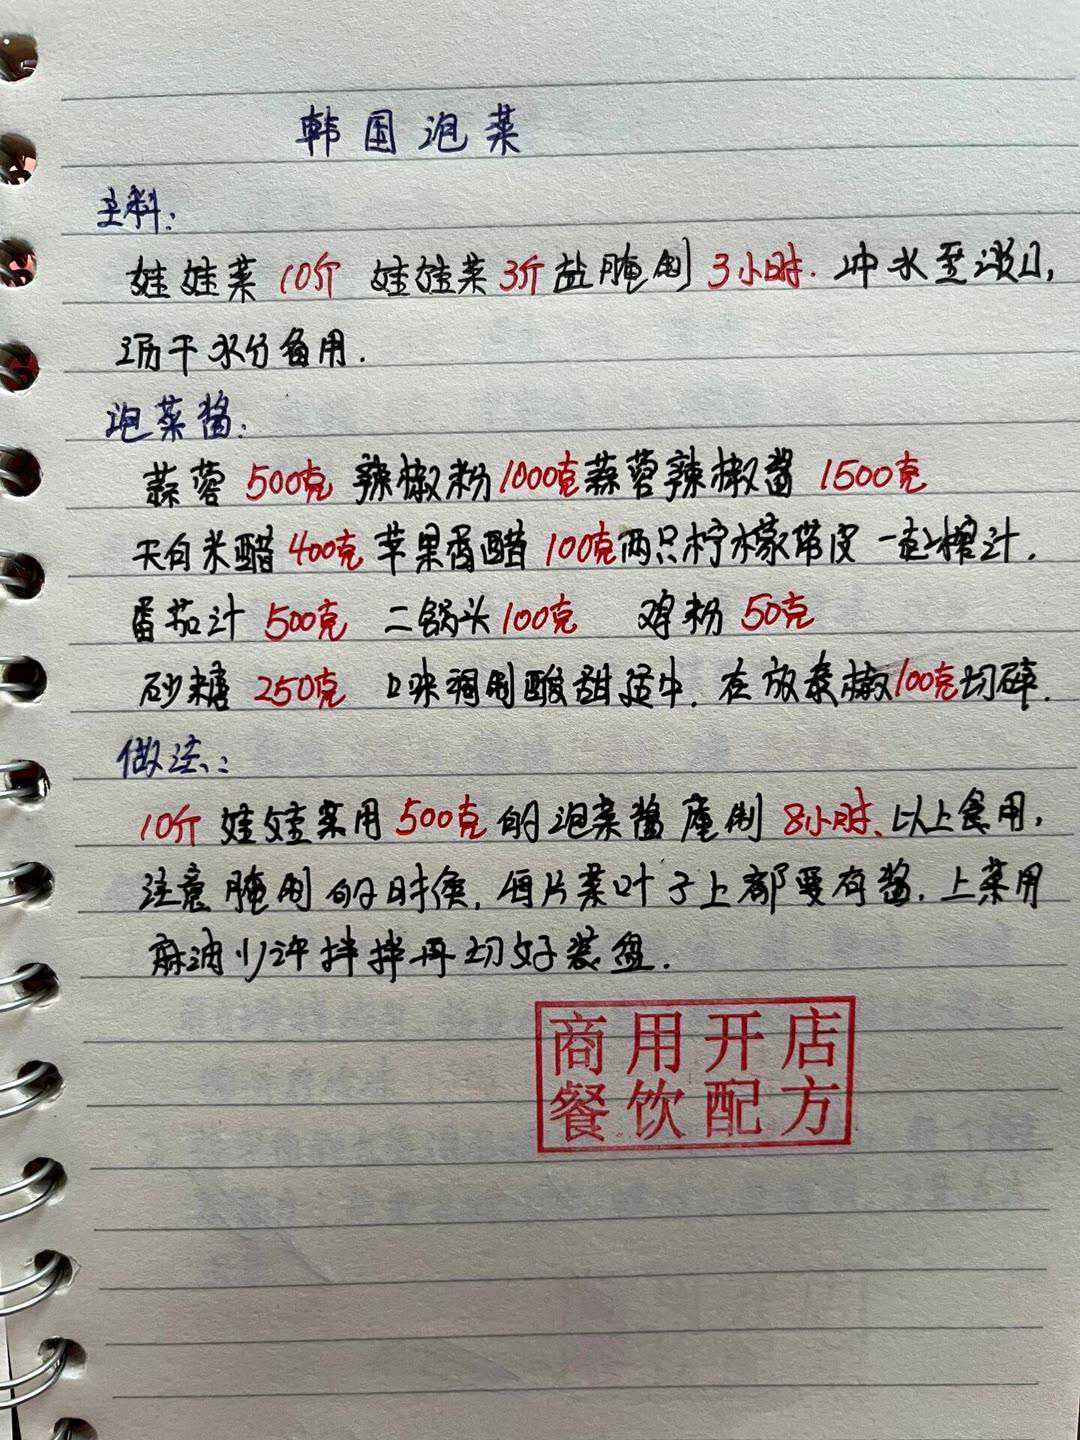 韩国泡菜
主料:
娃娃菜10斤 娃娃菜3斤盐腌制3小时.冲水至淡口,
沥干水分备用.
泡菜酱:
蒜蓉500克 辣椒粉1000克蒜蓉辣椒酱1500克
天白米醋400克苹果香醋100克两只柠檬带皮一起榨汁.
番茄汁500克 二锅头100克 鸡粉50克
砂糖250克 口味调制酸甜适中.在放泰椒100克切碎.
做法:
10斤娃娃菜用500克的泡菜酱庵制8小时、以上食用,
注意腌制的时侯,每片菜叶子上都要有酱.上菜用
麻油少许拌拌再切好装盘.
商用开店
餐饮配方